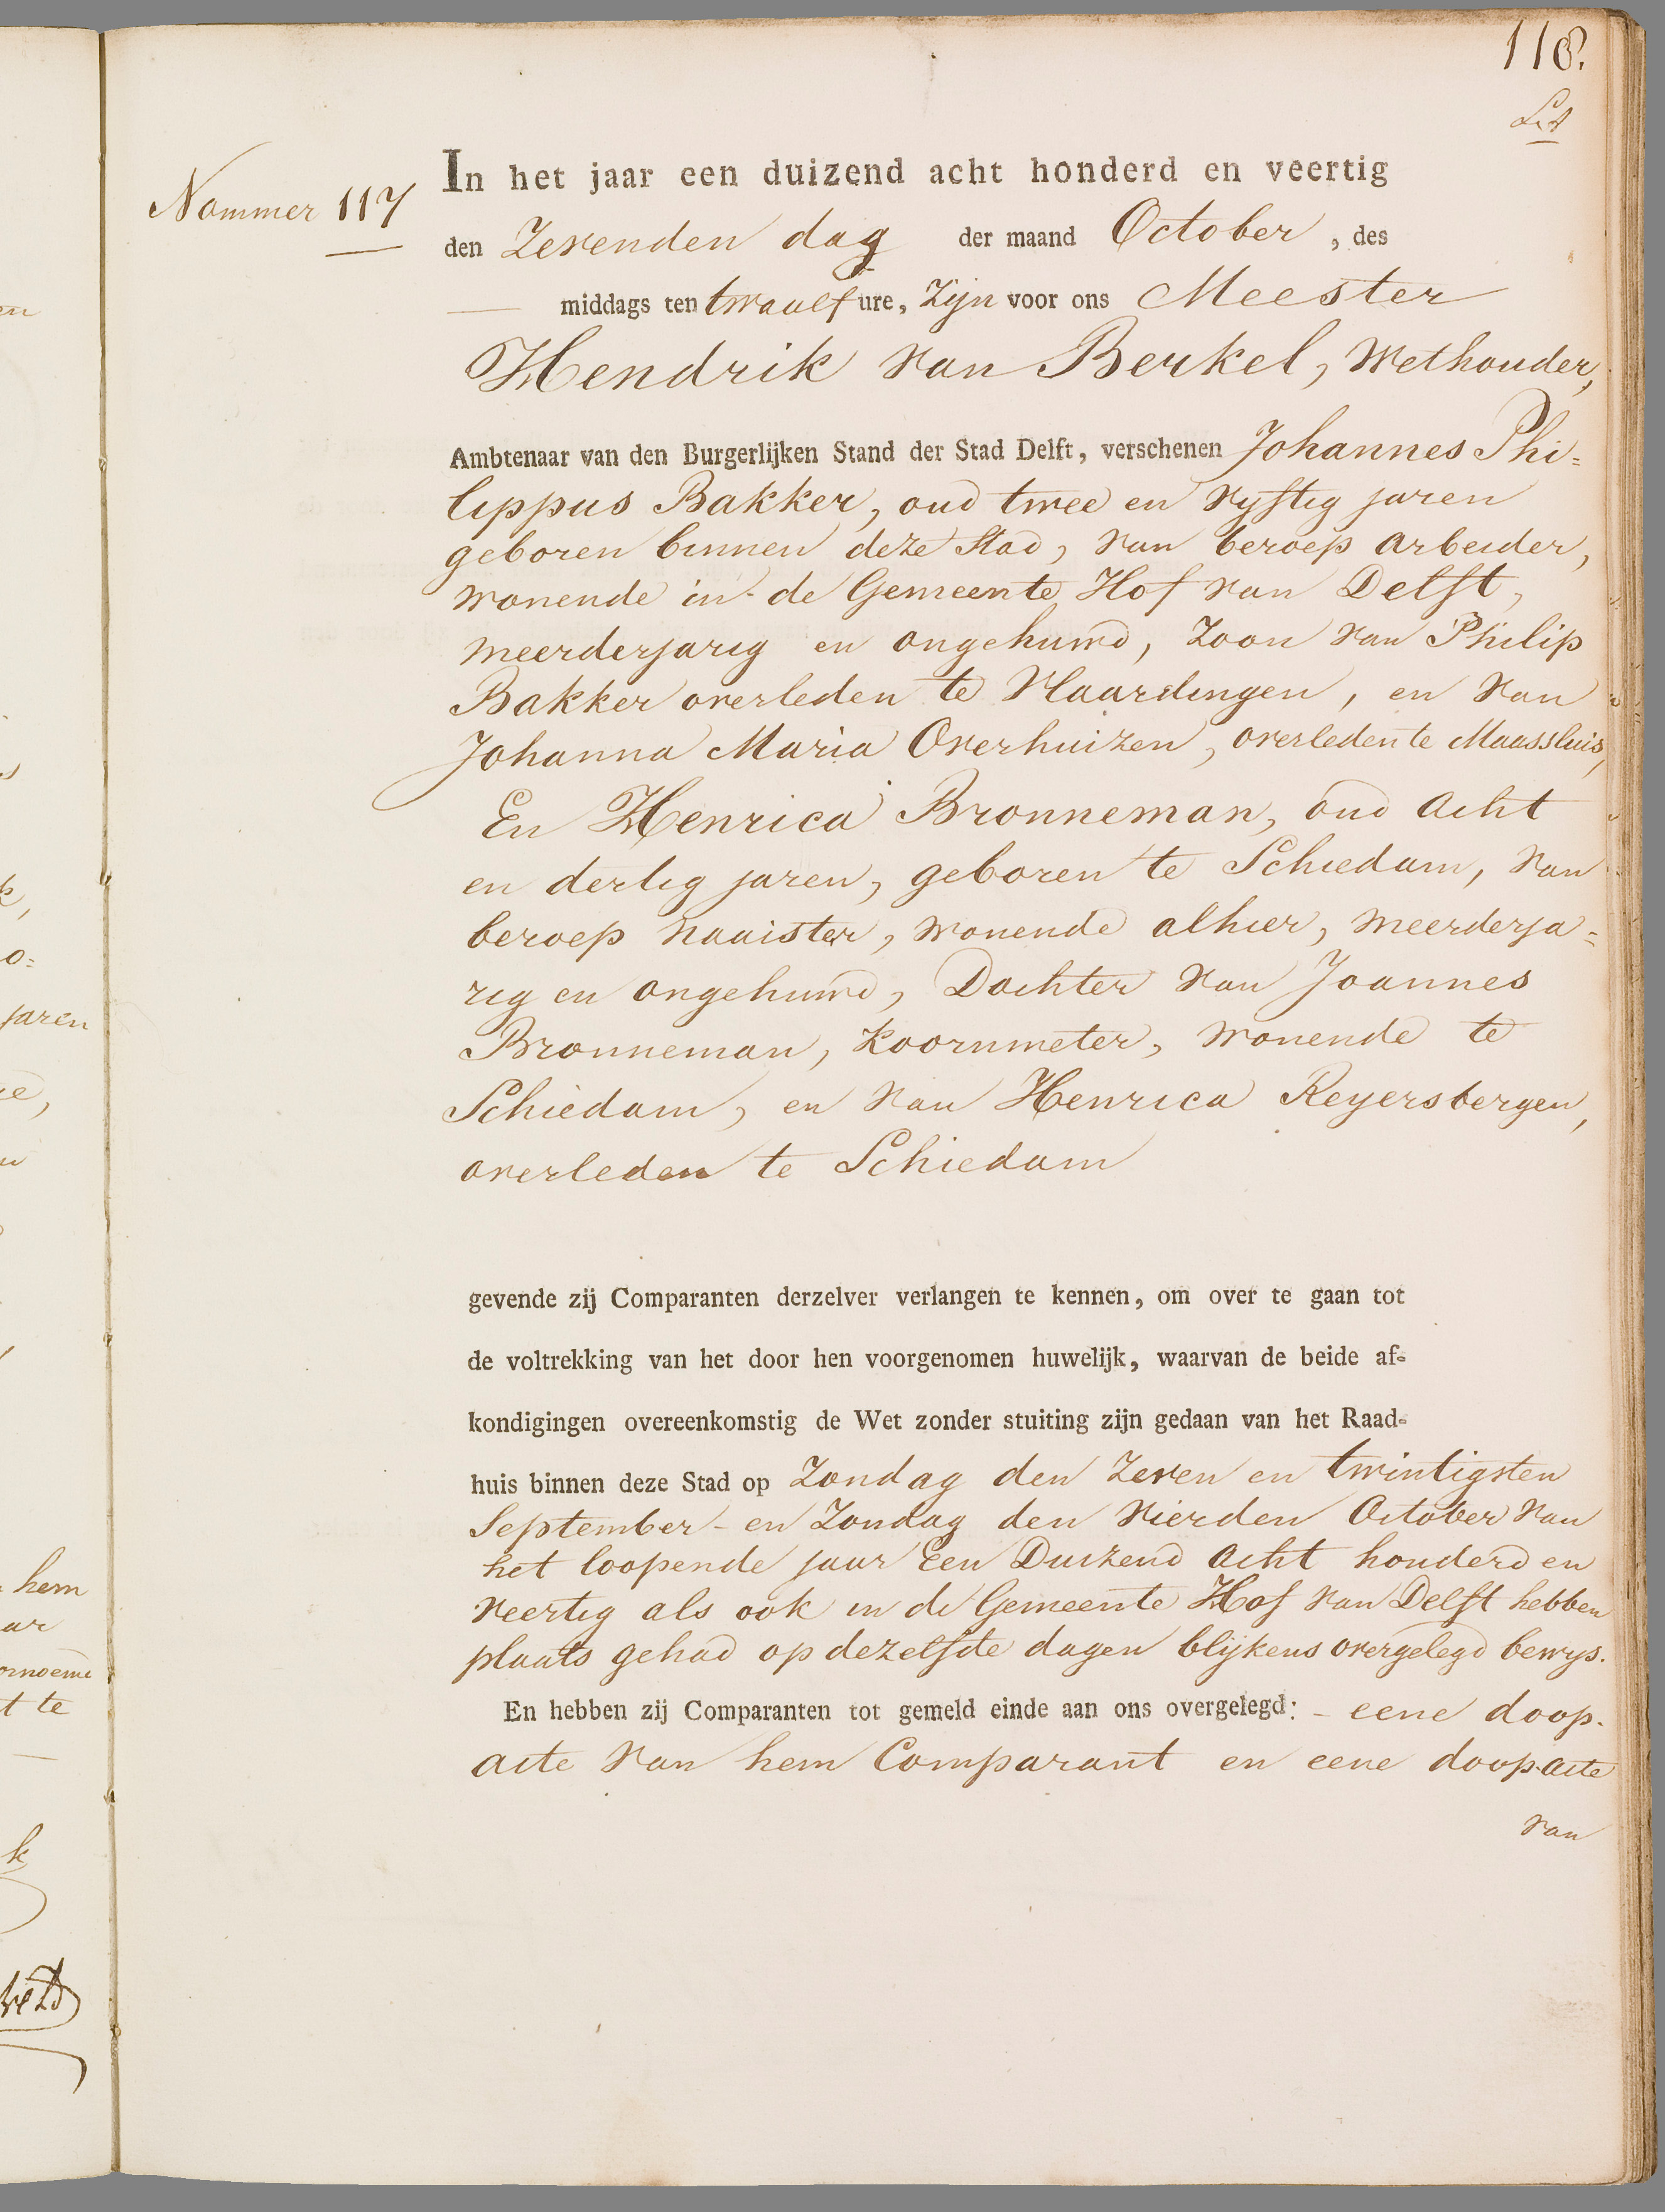 118.
Nommer 117
In het jaar een duizend acht honderd en veertig
den Zevenden dag der maand October, des
middags ten twaalf ure, Zijn voor ons Meester
Hendrik van Berkel, Wethouder,
Ambtenaar van den Burgerlijken Stand der Stad Delft, verschenen Johannes Phi=
lippus Bakker, oud twee en vyftig jaren
geboren binnen deze Stad, van beroep arbeider,
wonende in de Gemeente Hof van Delft,
meerderjarig en ongehuwd, Zoon van Philip
Bakker overleden te Vlaardingen, en van
Johanna Maria Overhuizen, overleden te Maassluis,
En Henrica Bronneman, oud acht
en dertig jaren, geboren te Schiedam, van
beroep naaister, wonende alhier, meerderja=
rig en ongehuwd, Dochter van Joannes
Bronneman, Koornmeter, wonende te
Schiedam, en van Henrica Reyersbergen,
overleden te Schiedam
gevende zij Comparanten derzelver verlangen te kennen, om over te gaan tot
de voltrekking van het door hen voorgenomen huwelijk, waarvan de beide af-
kondigingen overeenkomstig de Wet zonder stuiting zijn gedaan van het Raad-
huis binnen deze Stad op Zondag den Zeven en twintigsten
September - en Zondag den Vierden October van
het loopende jaar Een Duizend Acht honderd en
Veertig als ook in de Gemeente Hof van Delft hebben
plaats gehad op dezelfde dagen blijkens overgelegd bewys.
En hebben zij Comparanten tot gemeld einde aan ons overgelegd: - eene doop-
acte van hem Comparant en eene doop-acte
van